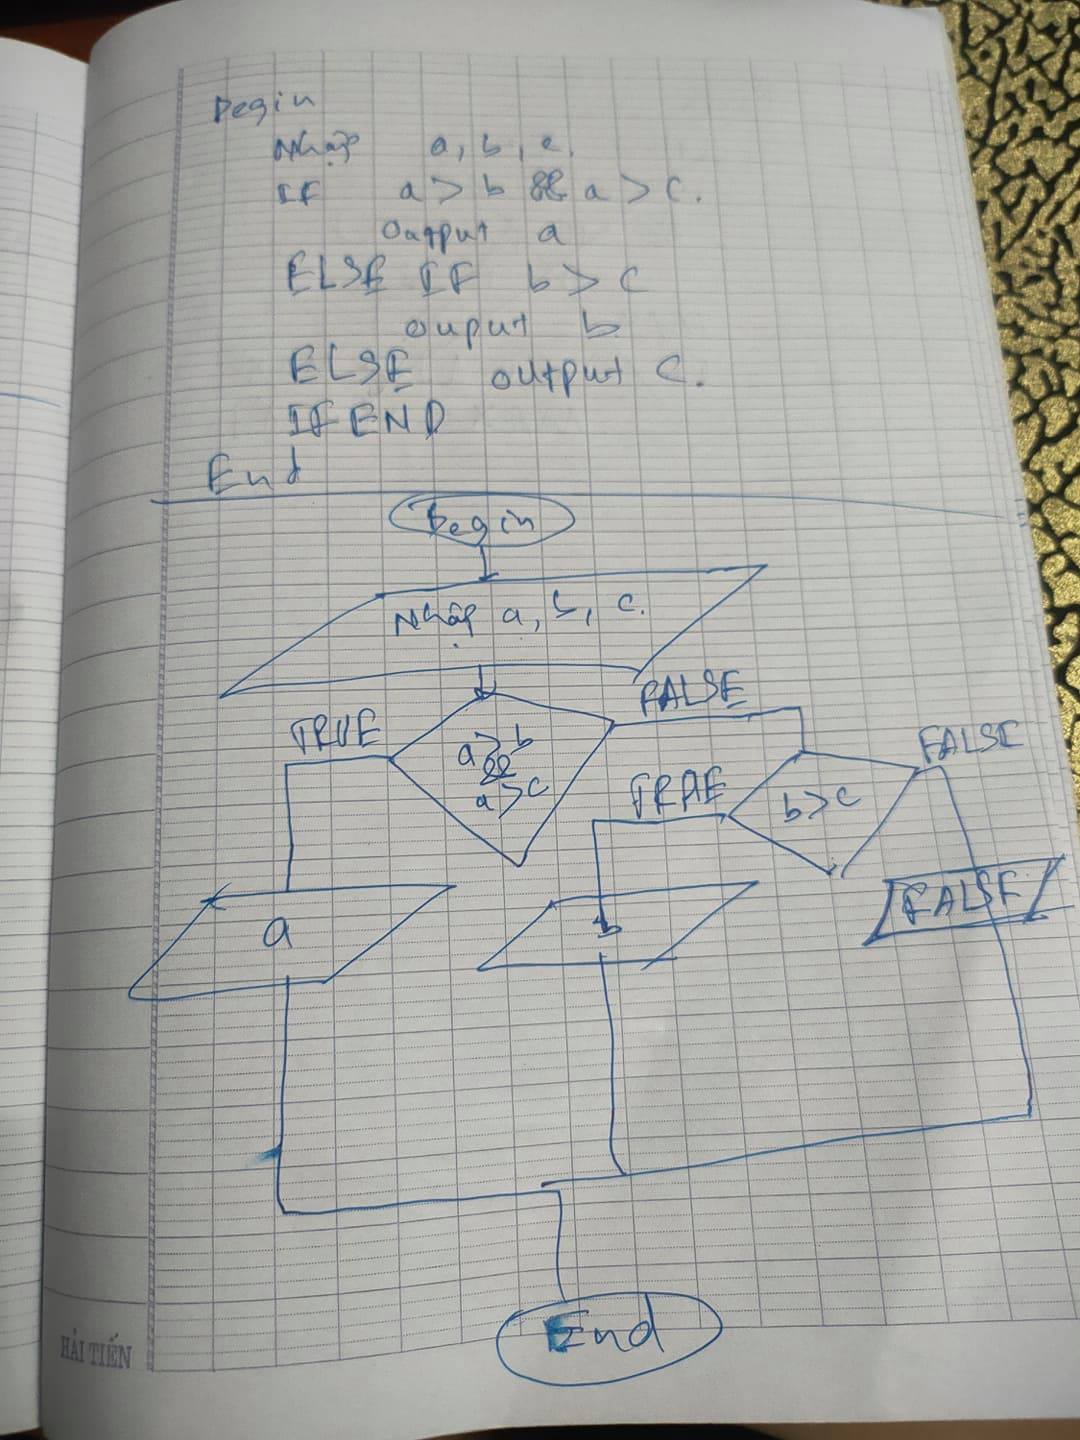 Begin
Nhập a, b, c.
IF a > b && a > c.
Output a
ELSE IF b > c
ouput b
ELSE output c.
IF END
End
Begin
Nhập a, b, c.
TRUE
a > b
&&
a > c
FALSE
TRUE
b > c
FALSE
a
b
FALSE
End
HẢI TIẾN